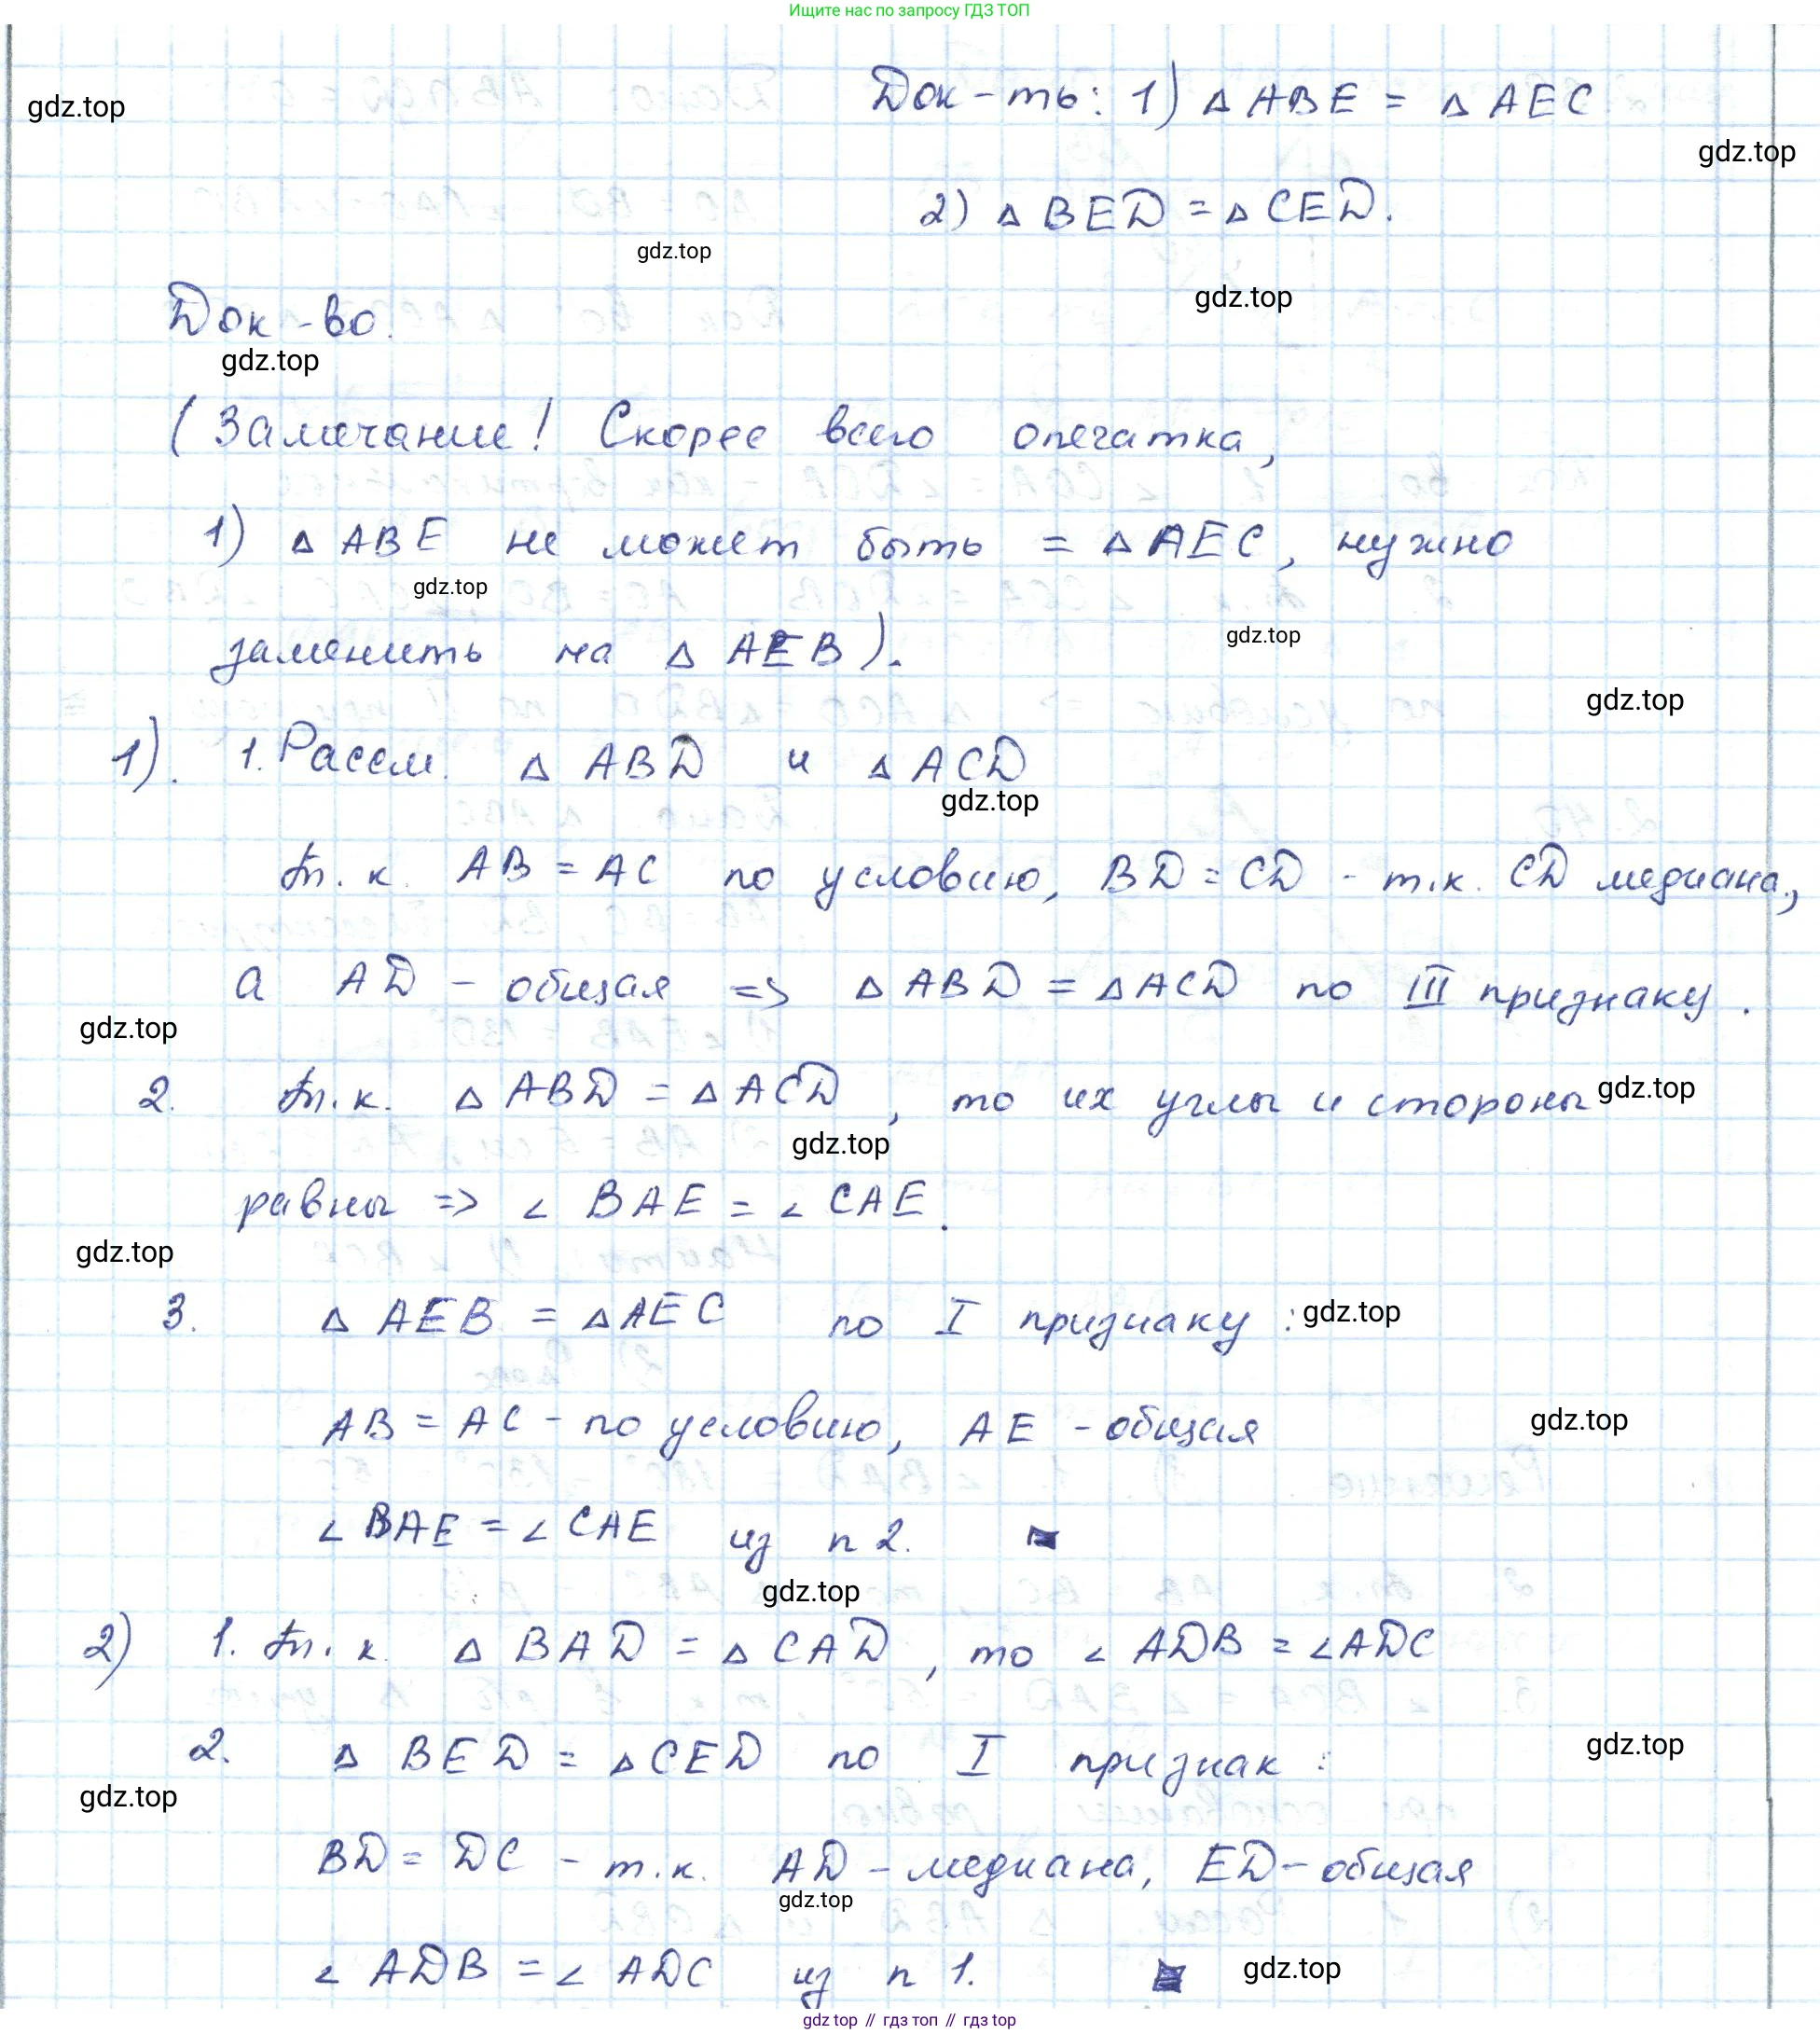 Ищите нас по запросу ГДЗ ТОП
Док-ть: 1) △ ABE = △ AEC
gdz.top
gdz.top
2) △ BED = △ CED.
gdz.top
gdz.top
Док-во.
gdz.top
(Замечание! Скорее всего опечатка,
1) △ ABE не может быть = △ AEC, нужно
gdz.top
gdz.top
заменить на △ AEB).
gdz.top
1). 1. Рассм. △ ABD и △ ACD
gdz.top
т.к. AB = AC по условию, BD = CD - т.к. CD медиана,
а AD - общая => △ ABD = △ ACD по III признаку.
gdz.top
2. т.к. △ ABD = △ ACD, то их углы и стороны
gdz.top
gdz.top
равны => ∠ BAE = ∠ CAE.
gdz.top
3. △ AEB = △ AEC по I признаку:
gdz.top
AB = AC - по условию, AE - общая
gdz.top
∠ BAE = ∠ CAE из п 2.
gdz.top
2) 1. т.к. △ BAD = △ CAD, то ∠ ADB = ∠ ADC
2. △ BED = △ CED по I признак:
gdz.top
gdz.top
BD = DC - т.к. AD - медиана, ED - общая
gdz.top
∠ ADB = ∠ ADC из п 1.
gdz.top
gdz top // гдз топ // gdz top